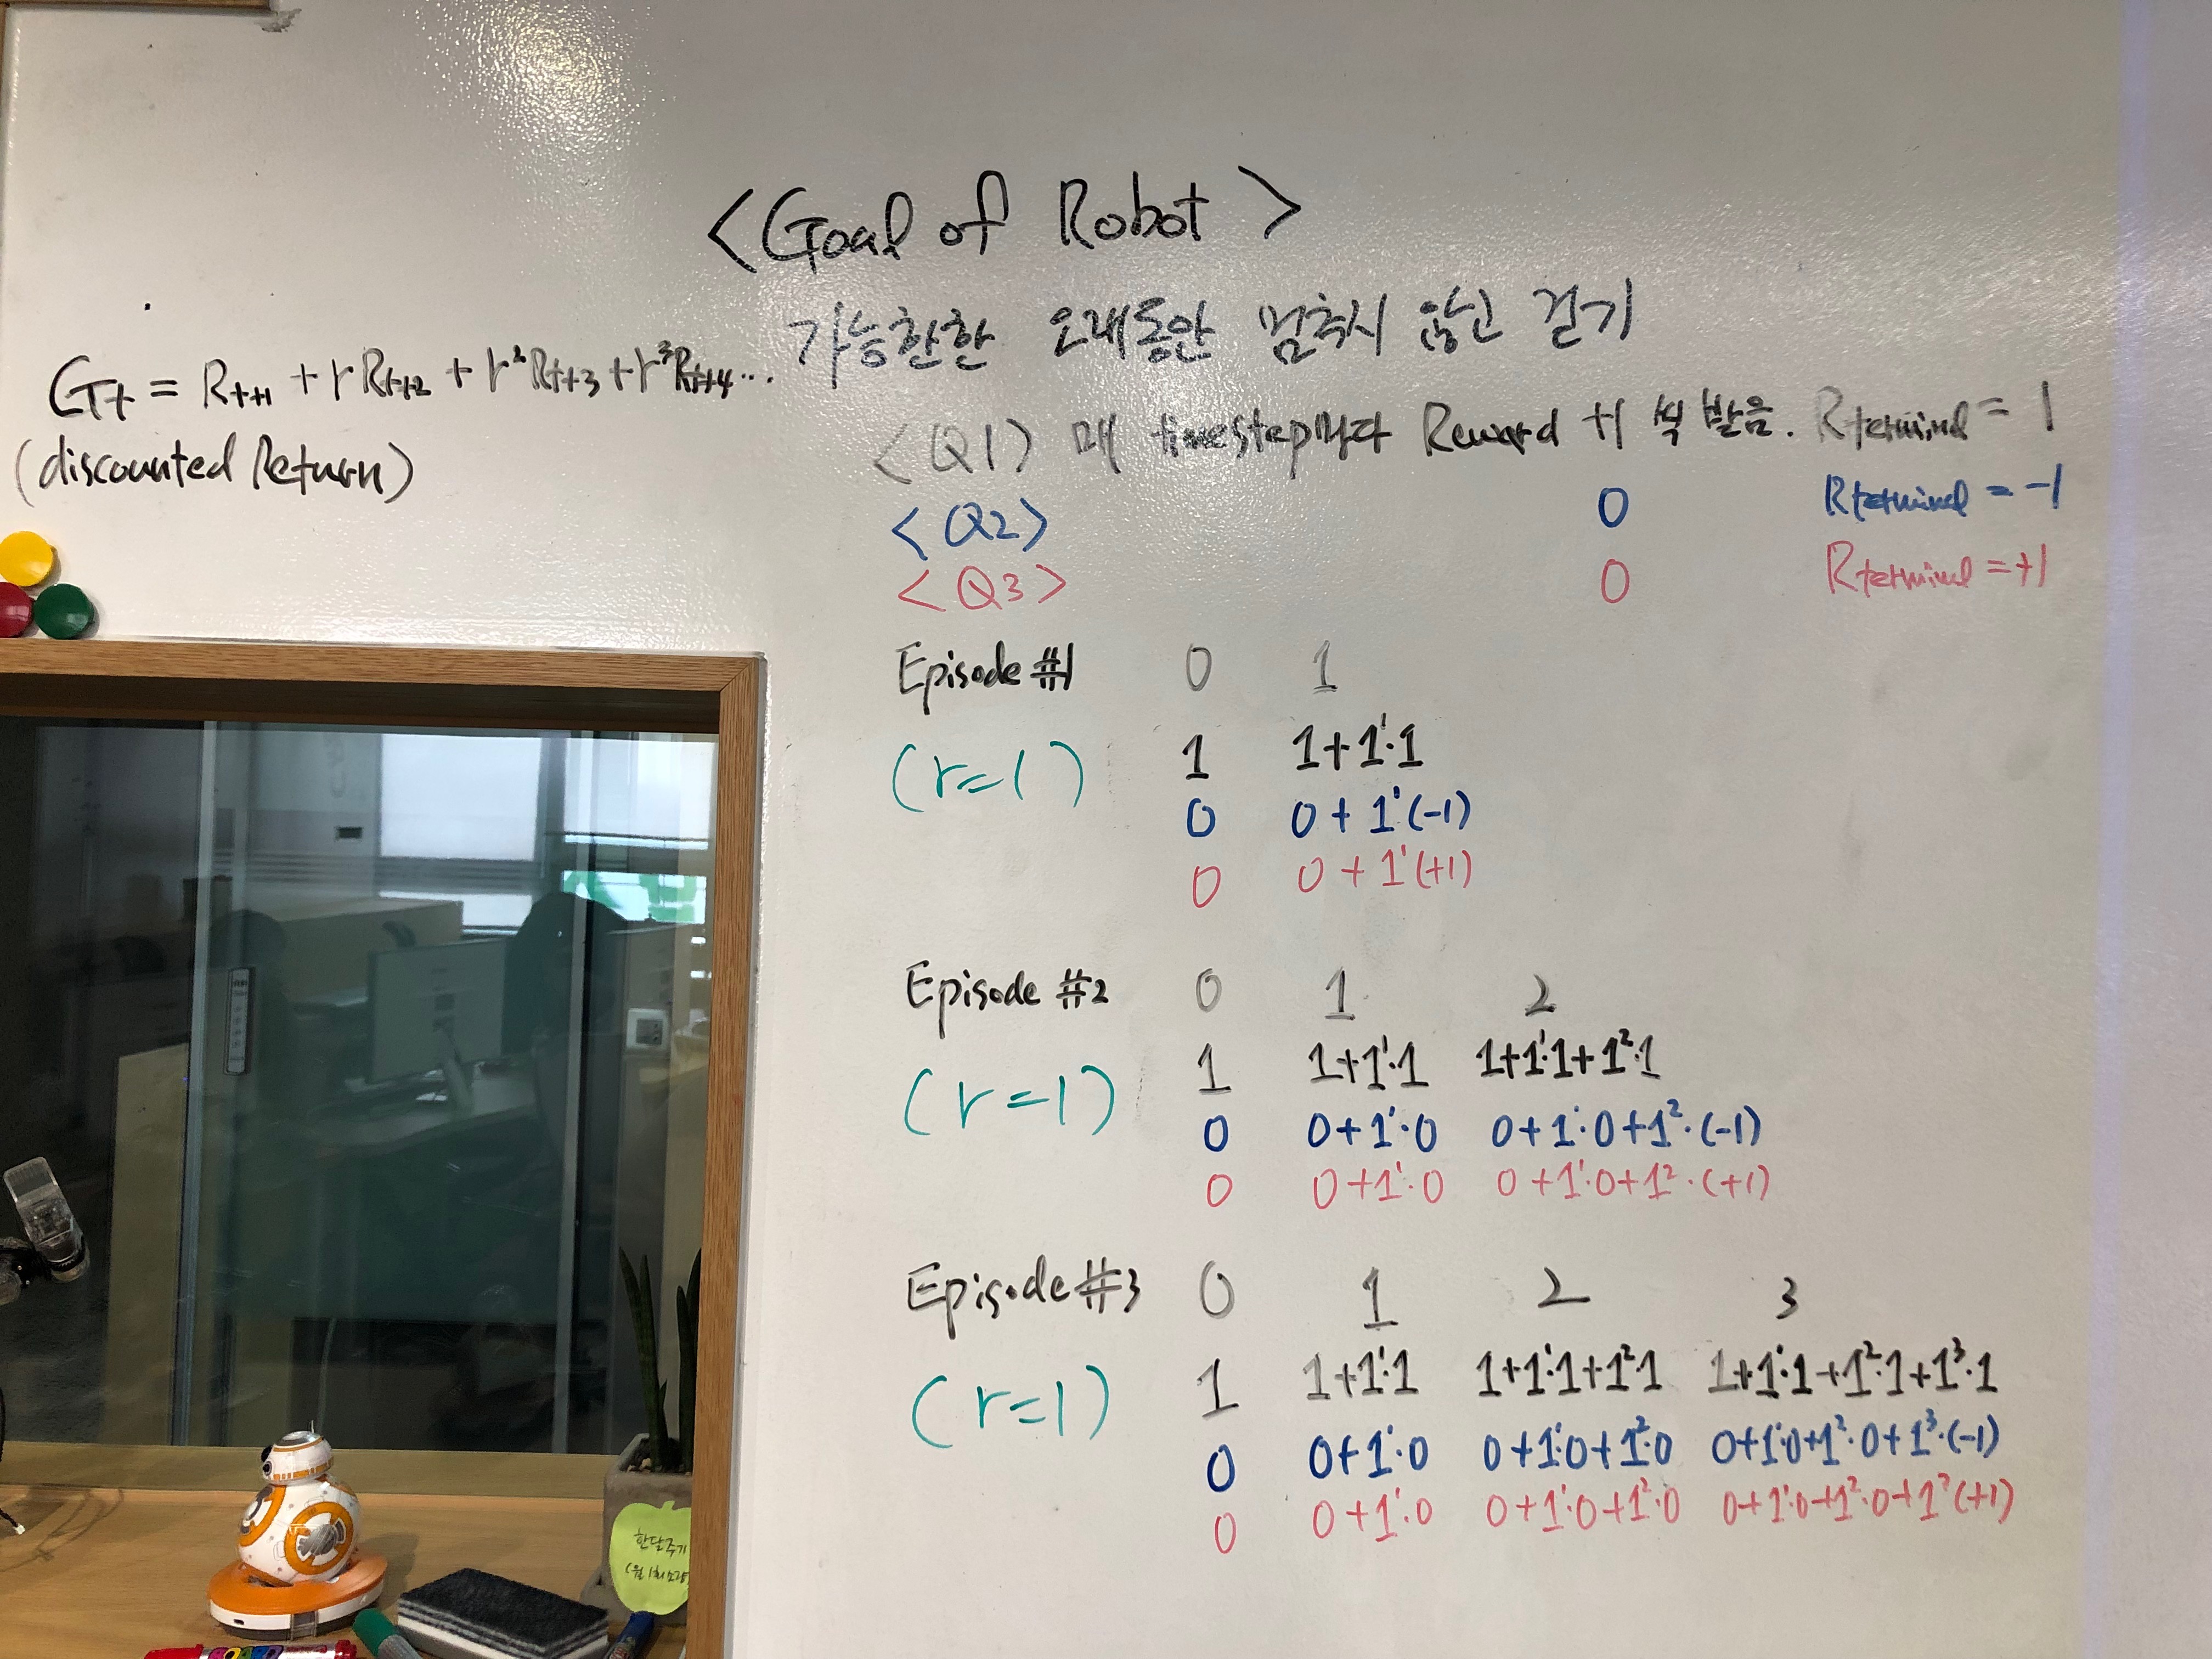 <Goal of Robot>
가능한한 오래동안 멈추지 않고 걷기
Gt = Rt+1 + rRt+2 + r²Rt+3 + r³Rt+4 ...
(discounted Return)
<Q1> 매 timestep마다 Reward +1 씩 받음. Rterminal = 1
<Q2> 0 Rterminal = -1
<Q3> 0 Rterminal = +1
Episode #1 0 1
(r=1) 1 1+1¹·1
0 0+1¹(-1)
0 0+1¹(+1)
Episode #2 0 1 2
(r=1) 1 1+1¹·1 1+1¹·1+1²·1
0 0+1¹·0 0+1¹·0+1²·(-1)
0 0+1¹·0 0+1¹·0+1²·(+1)
Episode #3 0 1 2 3
(r=1) 1 1+1¹·1 1+1¹·1+1²·1 1+1¹·1+1²·1+1³·1
0 0+1¹·0 0+1¹·0+1²·0 0+1¹·0+1²·0+1³·(-1)
0 0+1¹·0 0+1¹·0+1²·0 0+1¹·0+1²·0+1³(+1)
한달주기
(월1회